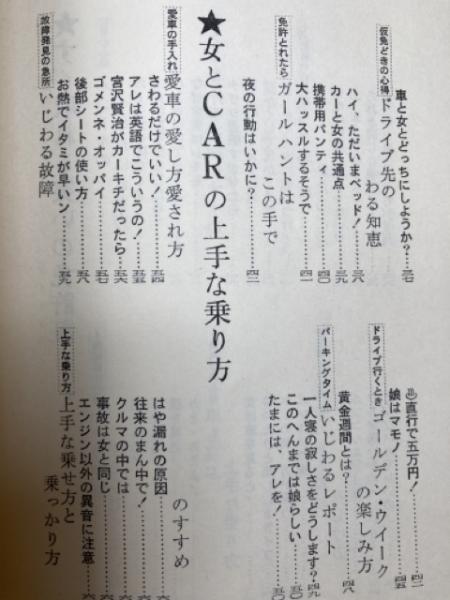 ★女とCARの上手な乗り方
仮免どきの心得
ドライブ先の
わる知恵
車と女とどっちにしようか?……三七
ハイ、ただいまベッド!……三八
カーと女の共通点……三九
携帯用パンティ……四〇
大ハッスルするそうで……四一
免許とれたら
ガールハントは
この手で
夜の行動はいかに?……四二
愛車の手入れ
愛車の愛し方愛され方
さわるだけでいい!……五四
アレは英語でこういうの!……五五
宮沢賢治がカーキチだったら……五六
ゴメンネ・オッパイ……五七
後部シートの使い方……五八
お熱でイタミが早いン……五九
故障発見の急所
いじわる故障
♨直行で五万円!……四二
娘はマモノ……四五
ドライブ行くとき
ゴールデン・ウイーク
の楽しみ方
黄金週間とは?……四八
パーキングタイム
いじわるレポート
一人寝の寂しさをどうします?……四九
このへんまでは娘らしい……五〇
たまには、アレを!……五〇
のすすめ
はや漏れの原因
往来のまん中で!
クルマの中では
事故は女と同じ
エンジン以外の異音に注意
上手な乗り方
上手な乗せ方と
乗っかり方